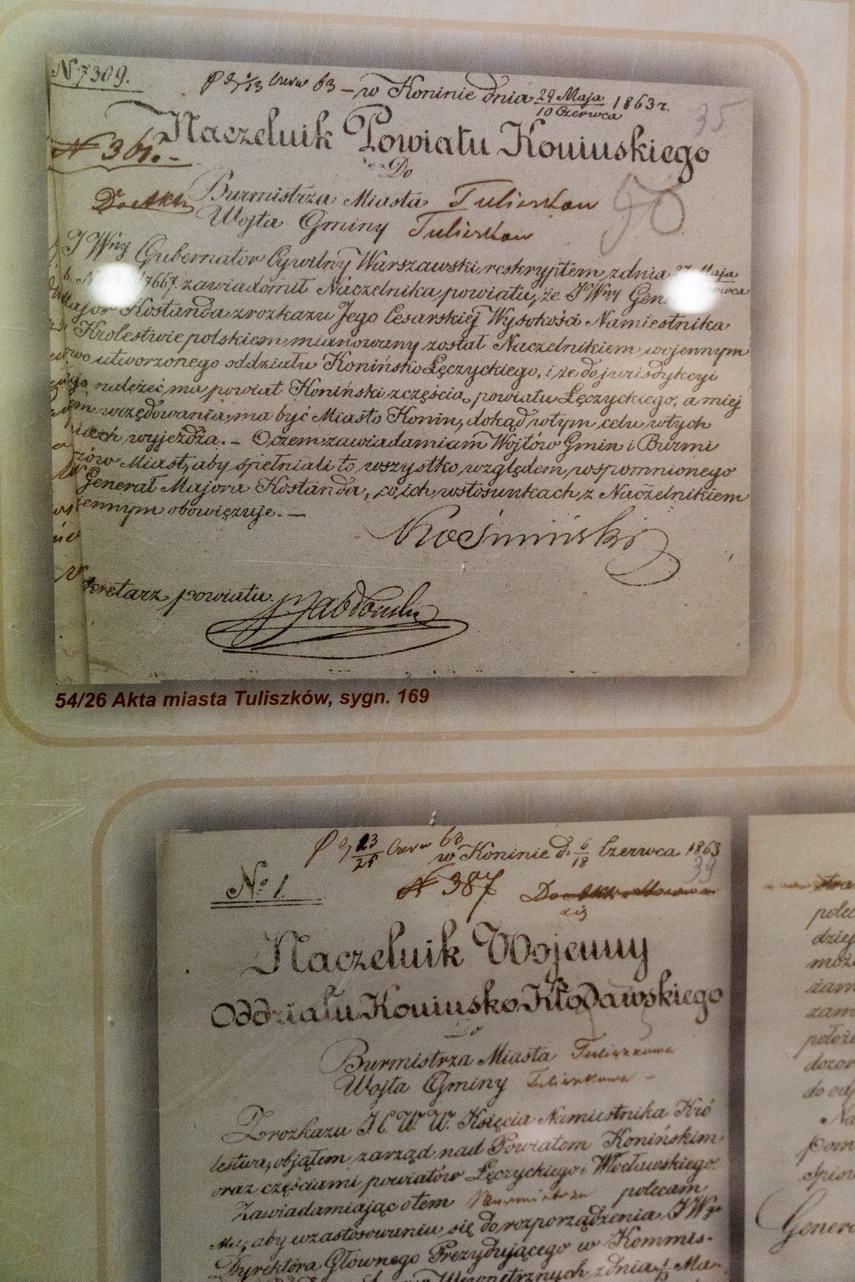 N 7309.
w Koninie dnia 29 Maja 1863 r.
10 Czerwca
35
Naczelnik Powiatu Koninskiego
N 361.-
Do
Burmistrza Miasta Tuliszkow
Wojta Gminy Tuliszkow
50
J Wny Gubernator Cywilny Warszawski reskryptem z dnia 27 Maja
7667 zawiadomił Naczelnika powiatu, że J Wny
Major Kostanda z rozkazu Jego Cesarskiej Wysokości Namiestnika
Krolestwie polskiem mianowany został Naczelnikiem wojennym
wo utworzonego oddziału Konińsko Łęczyckiego, i że do jurisdykcyi
należeć ma powiat Koniński z częścią powiatu Łęczyckiego, a miej
urzędowania, ma być Miasto Konin, dokąd w tym celu w tych
niach wyjeżdża. - O czem zawiadamiam Wojtów Gmin i Burmi
trzów Miast, aby spełniali to wszystko względem wspomnionego
Generał Majora Kostanda, co ich w stosunkach z Naczelnikiem
ennym obowięzuje. -
Kośmiński
kretarz powiatu
54/26 Akta miasta Tuliszków, sygn. 169
w Koninie d. 6/18 Czerwca 1863
39
No 1.
N 387
Naczelnik Wojenny
Oddziału Koninsko Kłodawskiego
Do
Burmistrza Miasta Tuliszkowa
Wojta Gminy Tuliszkowa -
Z rozkazu J. C. W. W. Księcia Namiestnika Kró
lestwa, objąłem zarząd nad Powiatem Konińskim
oraz częściami powiatów Łęczyckiego i Włocławskiego.
Zawiadamiając o tem Burmistrza polecam
Mu, aby w zastosowaniu się do rozporządzenia J W
Dyrektora Głównego Prezydującego w Kommis-
Wewnetrznych z dnia Ma-
polec
dziej
może
zam
zam
położe
dozor
do od
Na
pom
Spisu
Genera